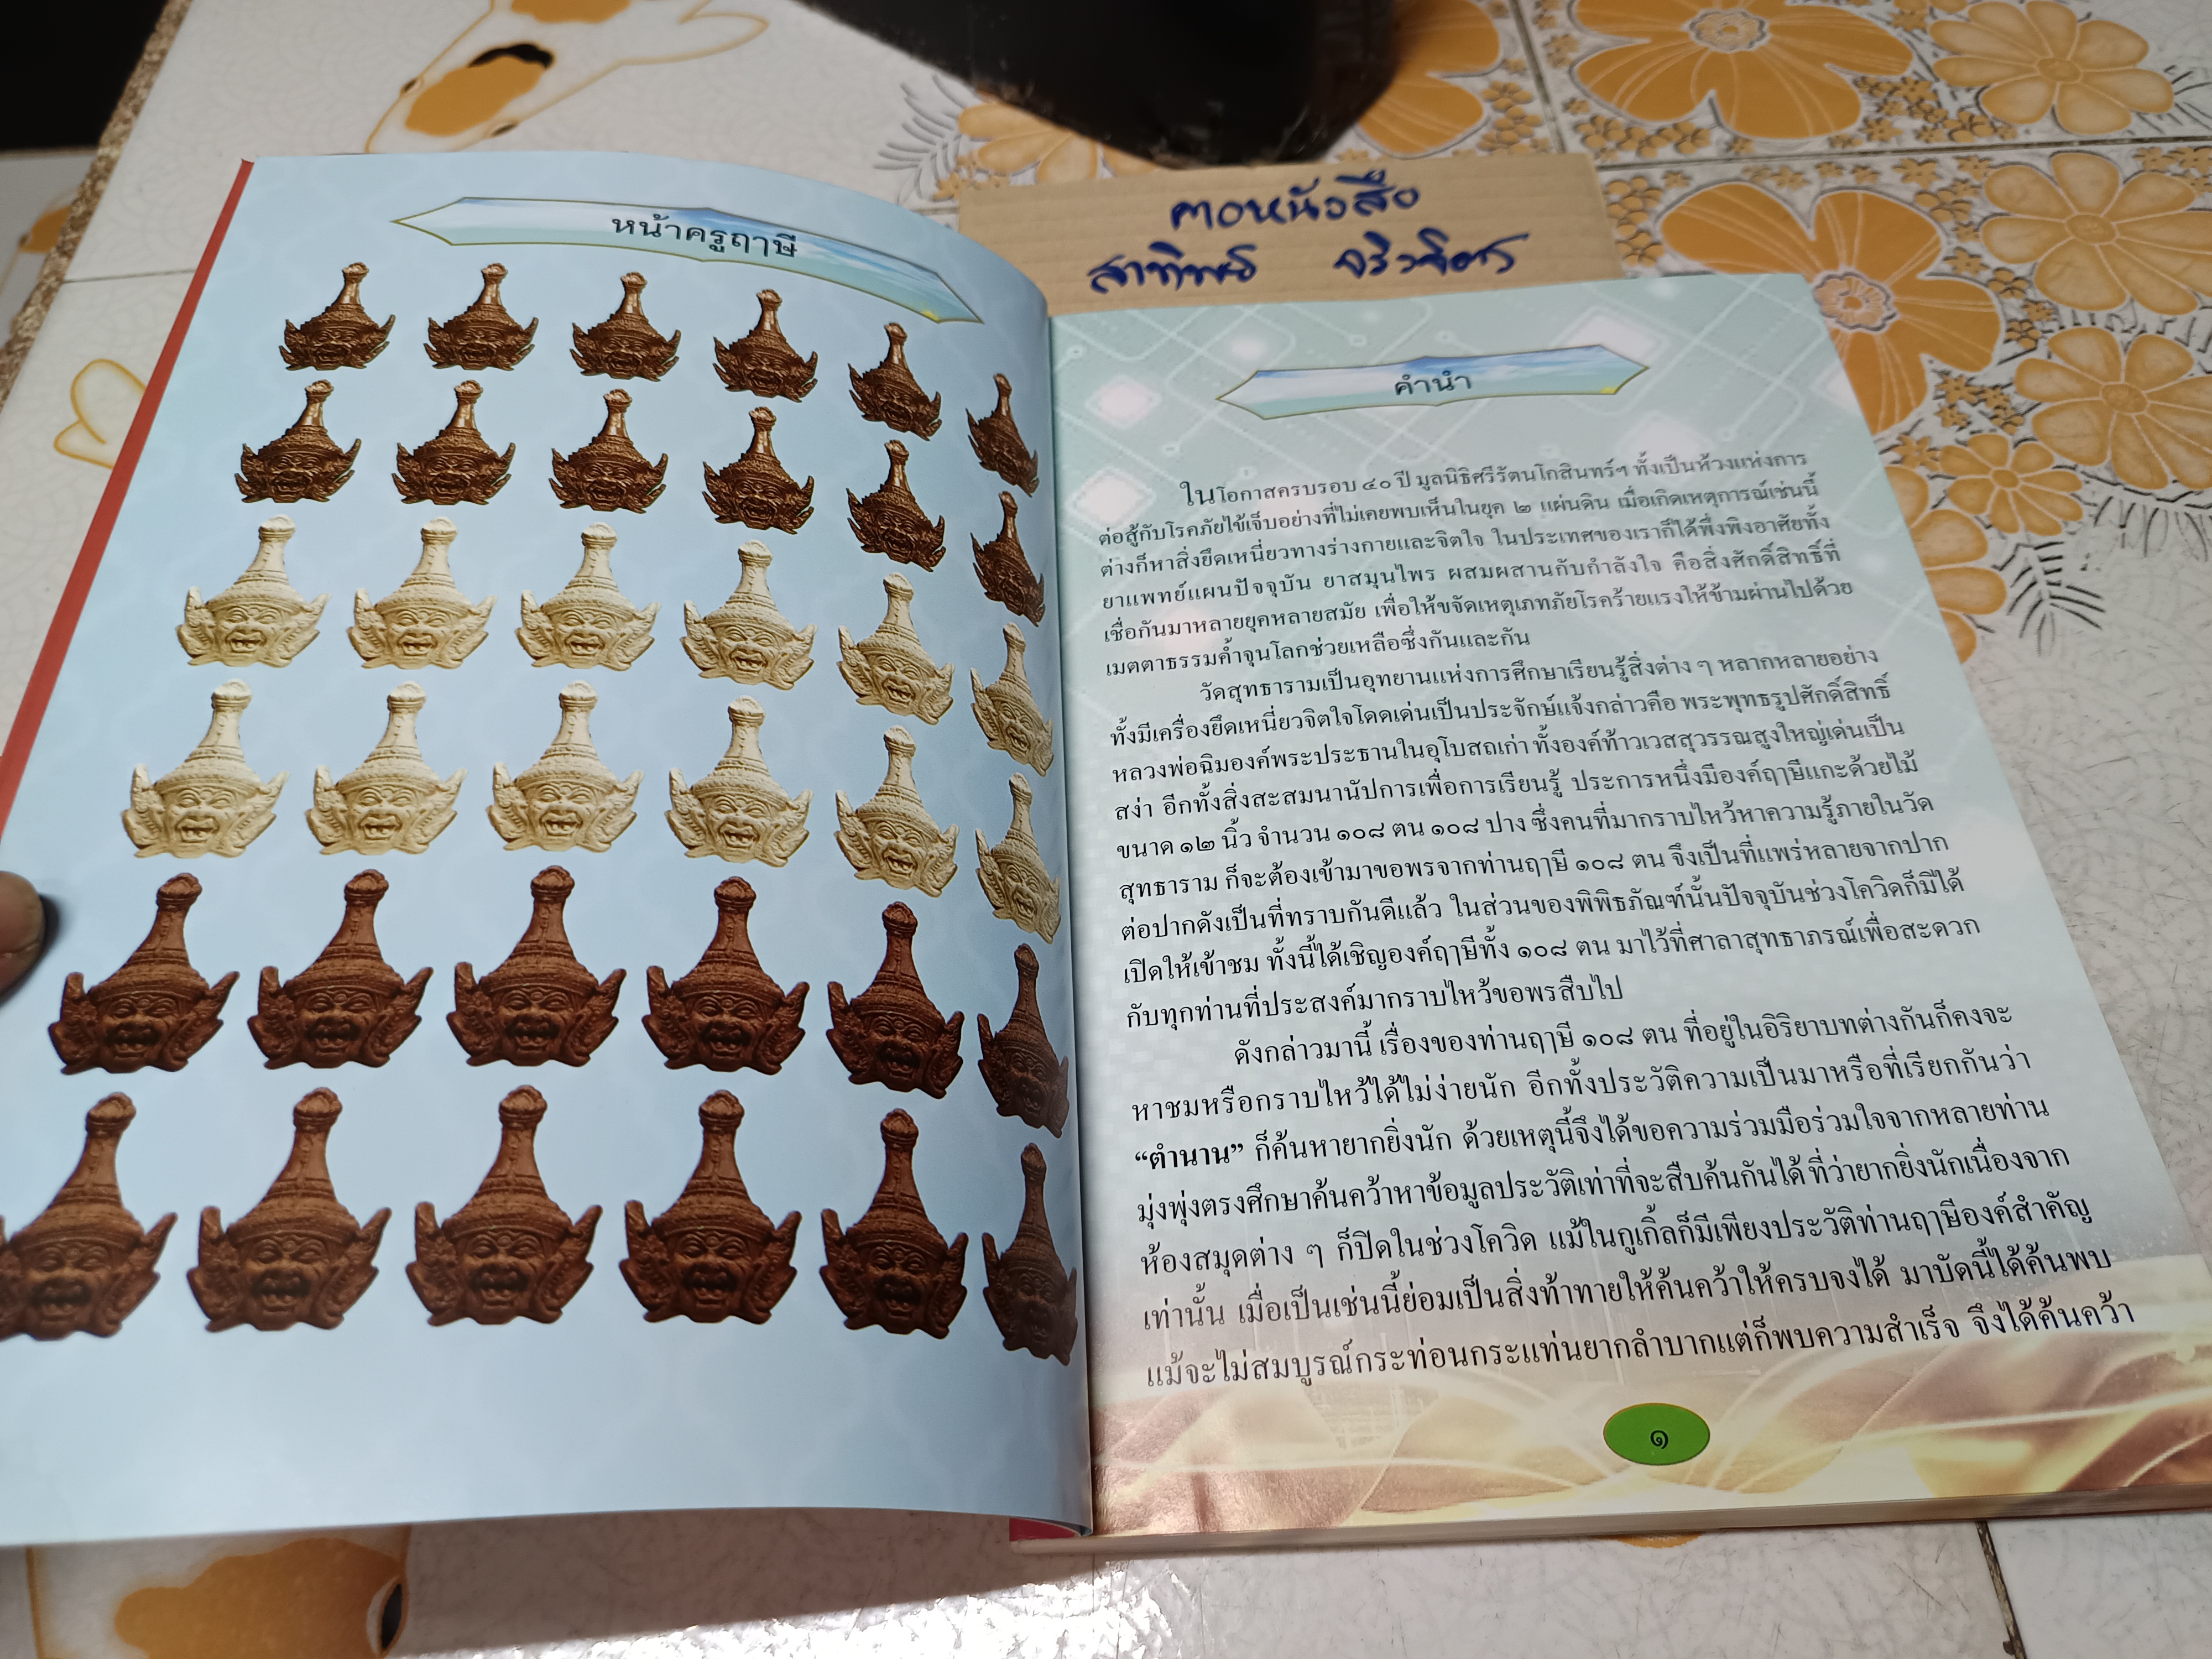 หน้าครูฤๅษี
คอหนังสือ
คำนำ
ในโอกาสครบรอบ ๔๐ ปี มูลนิธิศรีรัตนโกสินทร์ฯ ทั้งเป็นห้วงแห่งการ
ต่อสู้กับโรคภัยไข้เจ็บอย่างที่ไม่เคยพบเห็นในยุค ๒ แผ่นดิน เมื่อเกิดเหตุการณ์เช่นนี้
ต่างก็หาสิ่งยึดเหนี่ยวทางร่างกายและจิตใจ ในประเทศของเราก็ได้พึ่งพิงอาศัยทั้ง
ยาแพทย์แผนปัจจุบัน ยาสมุนไพร ผสมผสานกับกำลังใจ คือสิ่งศักดิ์สิทธิ์ที่
เชื่อกันมาหลายยุคหลายสมัย เพื่อให้ขจัดเหตุเภทภัยโรคร้ายแรงให้ข้ามผ่านไปด้วย
เมตตาธรรมค้ำจุนโลกช่วยเหลือซึ่งกันและกัน
วัดสุทธารามเป็นอุทยานแห่งการศึกษาเรียนรู้สิ่งต่าง ๆ หลากหลายอย่าง
ทั้งมีเครื่องยึดเหนี่ยวจิตใจโดดเด่นเป็นประจักษ์แจ้งกล่าวคือ พระพุทธรูปศักดิ์สิทธิ์
หลวงพ่อฉิมองค์พระประธานในอุโบสถเก่า ทั้งองค์ท้าวเวสสุวรรณสูงใหญ่เด่นเป็น
สง่า อีกทั้งสิ่งสะสมนานัปการเพื่อการเรียนรู้ ประการหนึ่งมีองค์ฤๅษีแกะด้วยไม้
ขนาด ๑๒ นิ้ว จำนวน ๑๐๘ ตน ๑๐๘ ปาง ซึ่งคนที่มากราบไหว้หาความรู้ภายในวัด
สุทธาราม ก็จะต้องเข้ามาขอพรจากท่านฤๅษี ๑๐๘ ตน จึงเป็นที่แพร่หลายจากปาก
ต่อปากดังเป็นที่ทราบกันดีแล้ว ในส่วนของพิพิธภัณฑ์นั้นปัจจุบันช่วงโควิดก็มิได้
เปิดให้เข้าชม ทั้งนี้ได้เชิญองค์ฤๅษีทั้ง ๑๐๘ ตน มาไว้ที่ศาลาสุทธาภรณ์เพื่อสะดวก
กับทุกท่านที่ประสงค์มากราบไหว้ขอพรสืบไป
ดังกล่าวมานี้ เรื่องของท่านฤๅษี ๑๐๘ ตน ที่อยู่ในอิริยาบทต่างกันก็คงจะ
หาชมหรือกราบไหว้ได้ไม่ง่ายนัก อีกทั้งประวัติความเป็นมาหรือที่เรียกกันว่า
“ตำนาน” ก็ค้นหายากยิ่งนัก ด้วยเหตุนี้จึงได้ขอความร่วมมือร่วมใจจากหลายท่าน
มุ่งพุ่งตรงศึกษาค้นคว้าหาข้อมูลประวัติเท่าที่จะสืบค้นกันได้ ที่ว่ายากยิ่งนักเนื่องจาก
ห้องสมุดต่าง ๆ ก็ปิดในช่วงโควิด แม้ในกูเกิ้ลก็มีเพียงประวัติท่านฤๅษีองค์สำคัญ
เท่านั้น เมื่อเป็นเช่นนี้ย่อมเป็นสิ่งท้าทายให้ค้นคว้าให้ครบจงได้ มาบัดนี้ได้ค้นพบ
แม้จะไม่สมบูรณ์กระท่อนกระแท่นยากลำบากแต่ก็พบความสำเร็จ จึงได้ค้นคว้า
๑